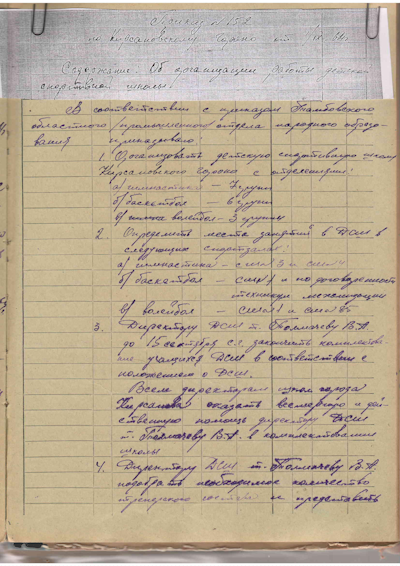 Приказ № 152
по Кирсановскому Гороно от
Содержание: Об организации работы детской
спортивной школы.
В соответствии с приказом Тамбовского
областного /промышленного отдела народного образо-
вания приказываю:
1. Организовать детскую спортивную школу
Кирсановского гороно с отделениями:
а) гимнастика – 7 групп
б) баскетбол – 6 групп
в) волейбол – 3 группы
2. Определить места занятий в ДСШ в
следующих спортзалах:
а) гимнастика – СШ № 3 и СШ № 4
б) баскетбол – СШ № 1 и по договоренности
техникум механизации
в) волейбол – СШ № 1 и СШ № 85
3. Директору ДСШ т. Толмачеву В.А.
до 15 сентября с.г. закончить комплектова-
ние учащихся ДСШ в соответствии с
положением о ДСШ.
Всем директорам школ города
Кирсанова оказать всемерную и дей-
ственную помощь директору ДСШ
т. Толмачеву В.А. в комплектовании
школы
4. Директору ДСШ т. Толмачеву В.А.
подобрать необходимое количество
тренерского состава и представить